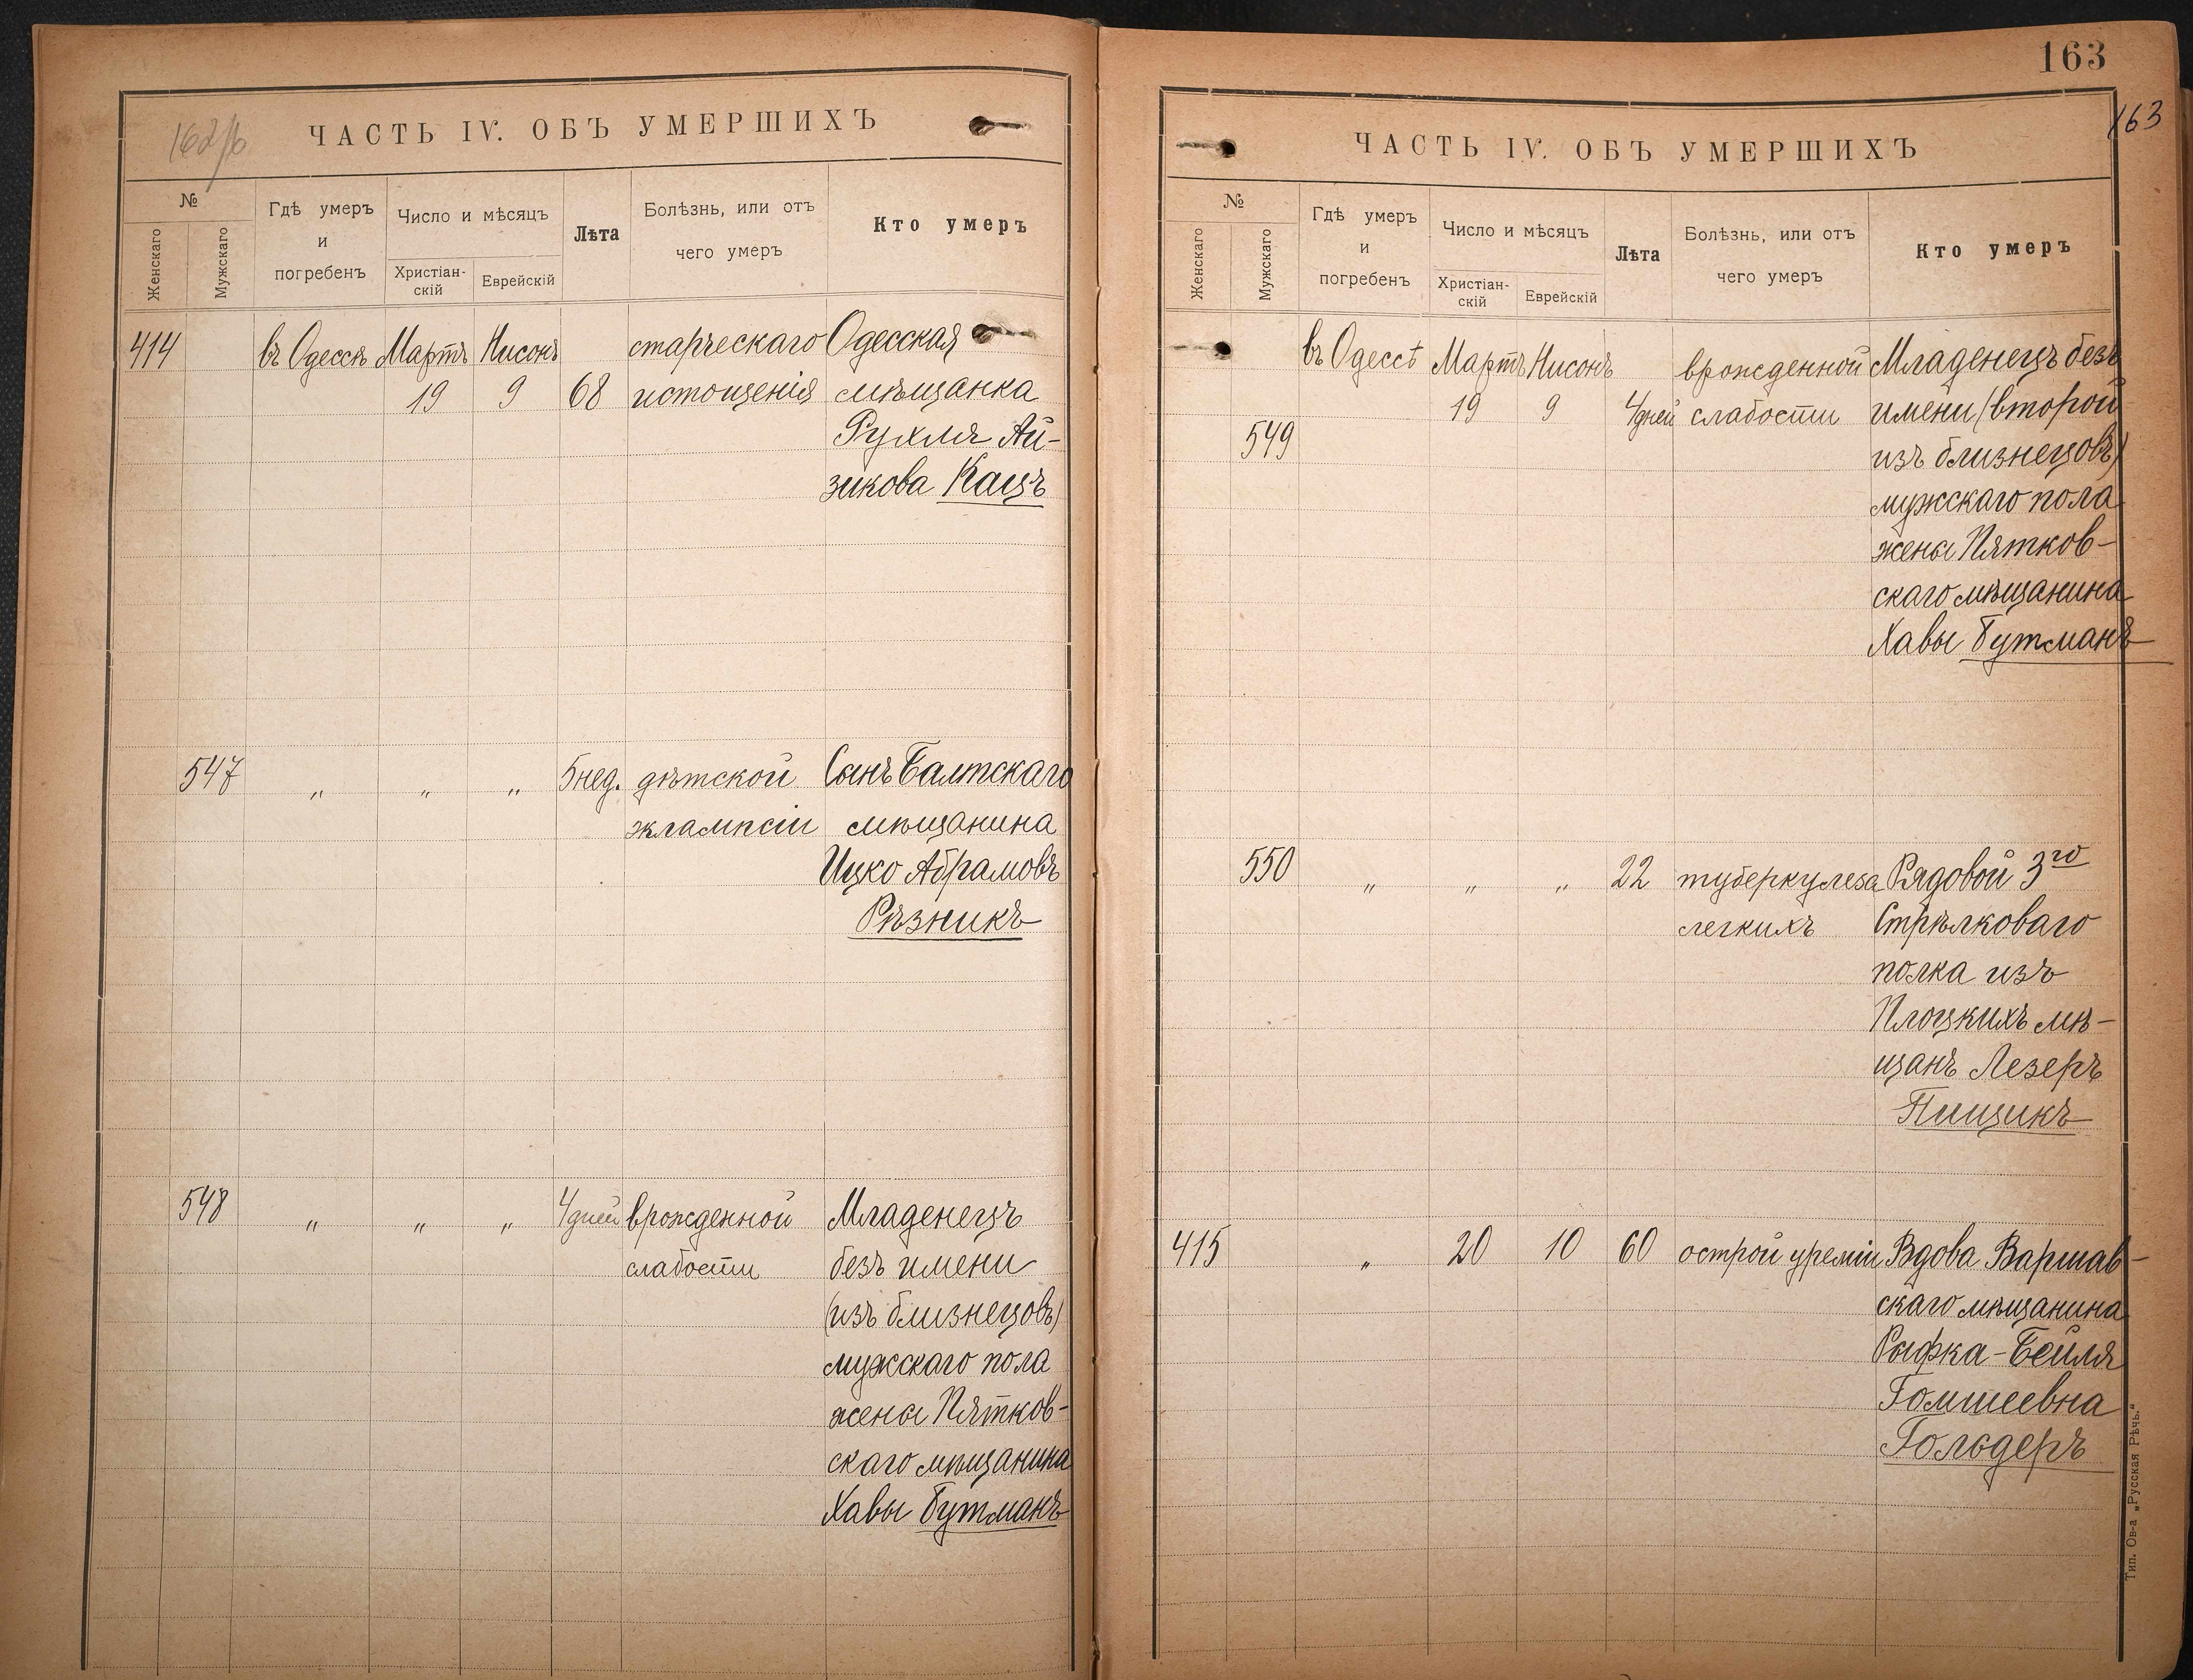 162 об
ЧАСТЬ IV. ОБЪ УМЕРШИХЪ
№
Женскаго
Мужскаго
Гдѣ умеръ
и
погребенъ
Число и мѣсяцъ
Христіан-
скій
Еврейскій
Лѣта
Болѣзнь, или отъ
чего умеръ
Кто умеръ
414 въ Одессѣ Мартъ Нисонъ старческаго Одесская
19 9 68 истощенія мѣщанка
Рухля Ай-
зикова Кацъ
547 „ „ „ 5 нед. дѣтской Сынъ Балтскаго
эклампсіи мѣщанина
Ицко Абрамовъ
Рѣзникъ
548 „ „ „ 4 дней врожденной Младенецъ
слабости безъ имени
(изъ близнецовъ)
мужскаго пола
жены Пятков-
скаго мѣщанина
Хавы Гутманъ
163
163
ЧАСТЬ IV. ОБЪ УМЕРШИХЪ
№
Женскаго
Мужскаго
Гдѣ умеръ
и
погребенъ
Число и мѣсяцъ
Христіан-
скій
Еврейскій
Лѣта
Болѣзнь, или отъ
чего умеръ
Кто умеръ
въ Одессѣ Мартъ Нисонъ врожденной Младенецъ безъ
19 9 4 дней слабости имени (второй
549 изъ близнецовъ)
мужскаго пола
жены Пятков-
скаго мѣщанина
Хавы Гутманъ
550 „ „ „ 22 туберкулеза Рядовой 3го
легкихъ Стрѣлковаго
полка изъ
Плоцкихъ мѣ-
щанъ Лезеръ
Пищикъ
415 „ 20 10 60 острой уреміи Вдова Варшав-
скаго мѣщанина
Рыфка-Бейля
Гомшеевна
Гольдеръ
Тип. Ов-а „Русская Рѣчь.“